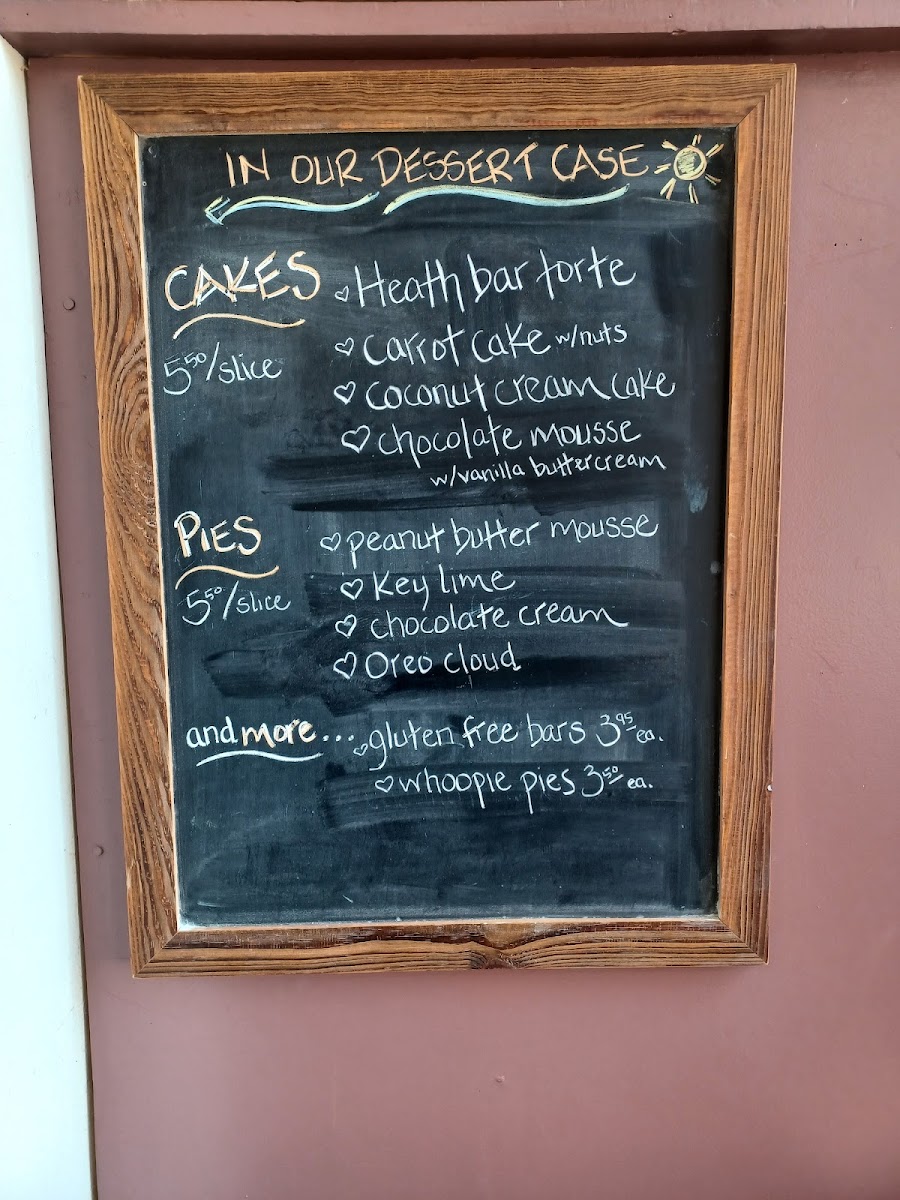 IN OUR DESSERT CASE
CAKES
5.50/slice
Heath bar torte
carrot cake w/nuts
coconut cream cake
chocolate mousse
w/vanilla buttercream
PIES
5.50/slice
peanut butter mousse
Key lime
chocolate cream
Oreo cloud
and more...
gluten free bars 3.95 ea.
whoopie pies 3.50 ea.